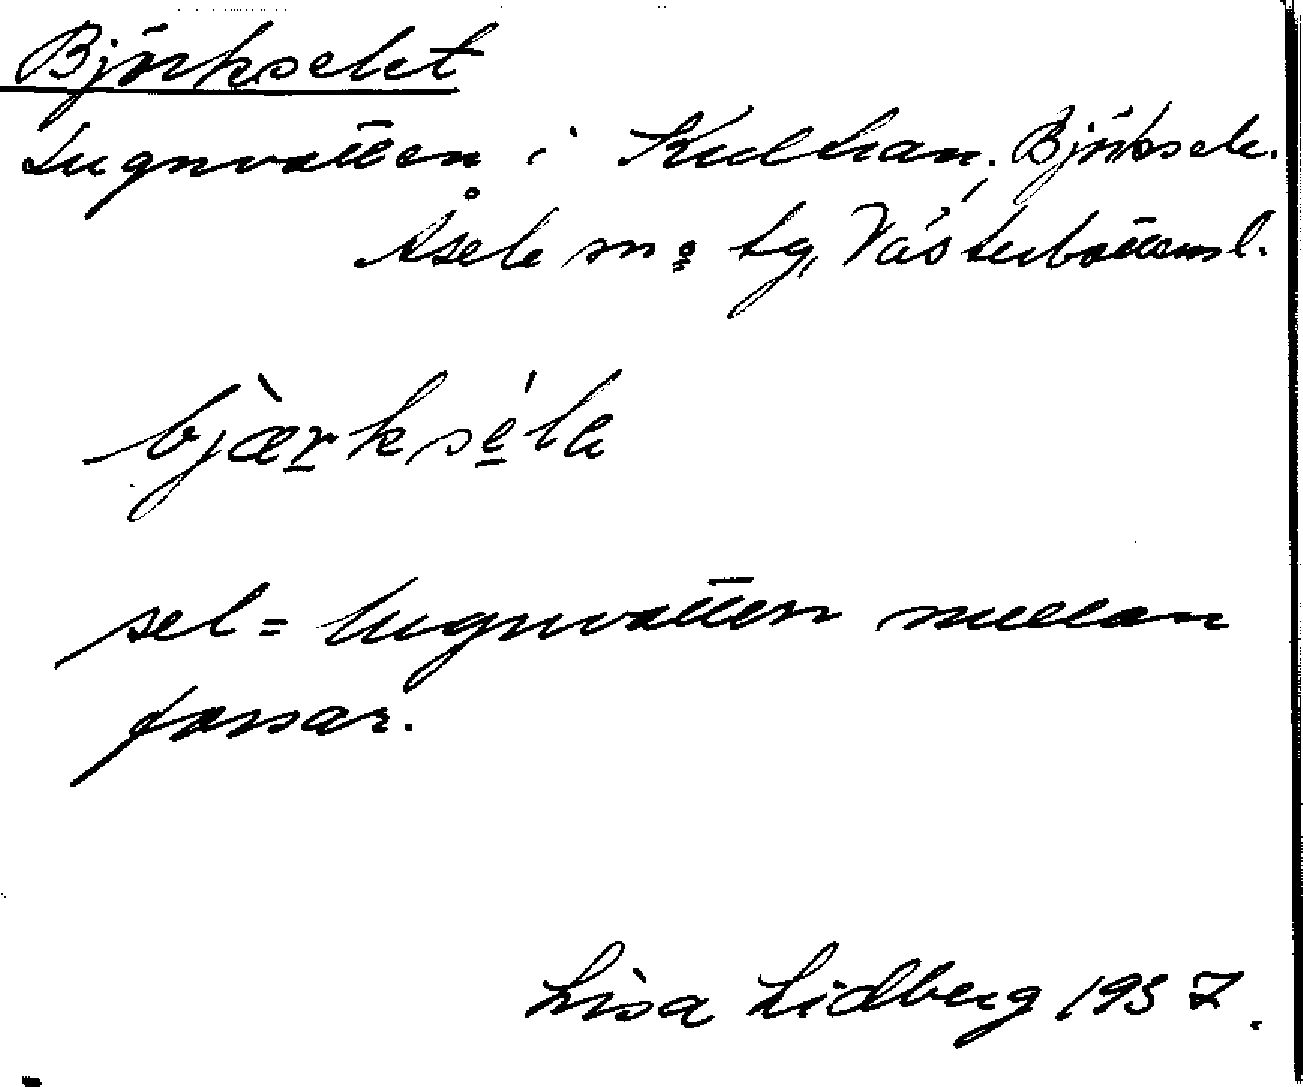 Björkselet
Lugnvatten i Kultran, Björksele.
Åsele sn o lg, Västerbottens l.
bjæ̀rkséle
sel = lugnvatten mellan
forsar.
Lisa Lidberg 1937.